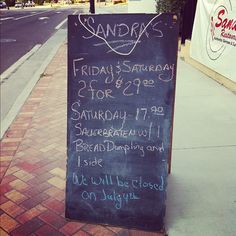 SANDRA'S
FRIDAY & SATURDAY
2 FOR $29.00
SATURDAY - 17.90
SAUERBRATEN w/ 1
BREAD Dumpling and
1 side
We will be closed
on July 4th